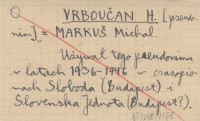 VRBOUČAN H. [pseudo-
nim] = MARKUŠ Michal.
Užíval tego pseudonimu
w latach 1936-1946 w czasopis-
mach Sloboda (Budapest) i
Slovenska Jednota (Budapest?).